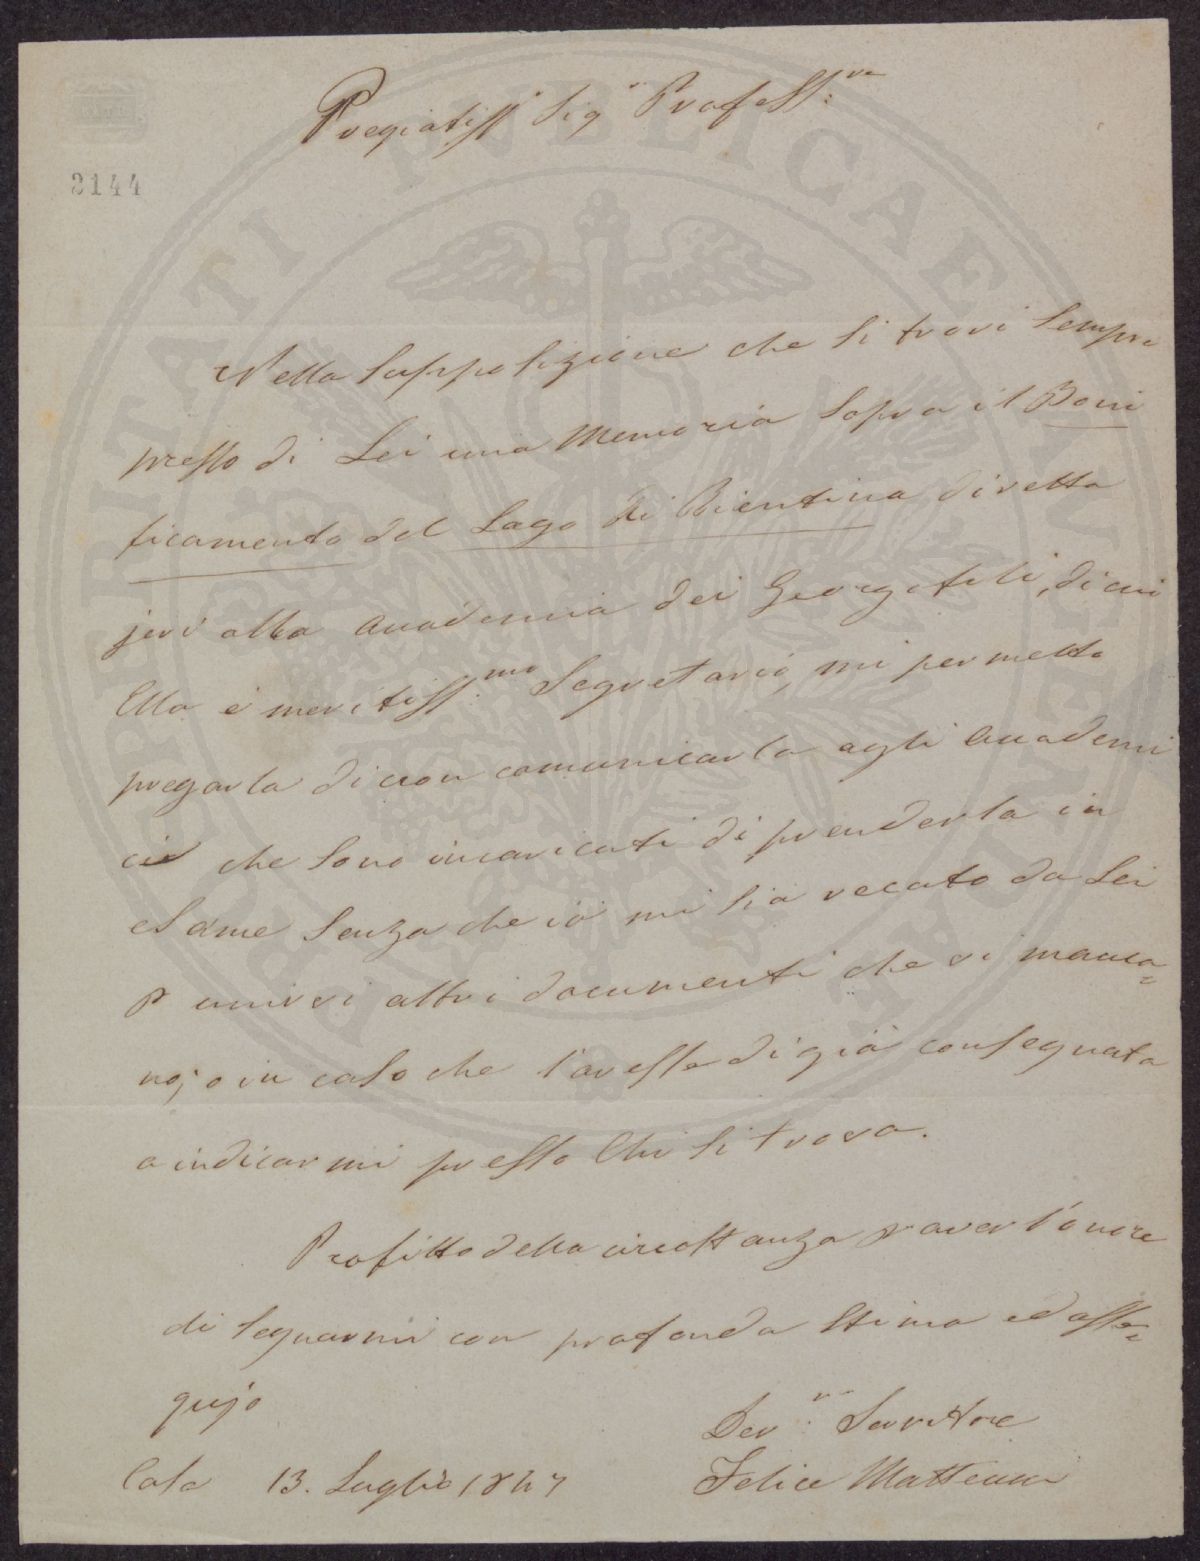 Pregiatiss.º Sig.r Profess.re
2144
Nella supposizione che si trovi sempre
presso di Lei una Memoria sopra il Boni
ficamento del Lago di Bientina diretta
jeri alla Accademia dei Georgofili, di cui
Ella è meritiss.mo Segretario, mi permetto
pregarla di non comunicarla agli Accademi
ci che sono incaricati di prenderla in
esame senza che io mi sia recato da Lei
p unirvi altri documenti che vi manca=
no; o in caso che l'avesse di già consegnata
a indicarmi presso chi si trova.
Profitto della circostanza p aver l'onore
di segnarmi con profonda stima ed osse=
quijo
Dev.mo Servitore
Casa 13. Luglio 1847
Felice Matteucci
PUBLICAE